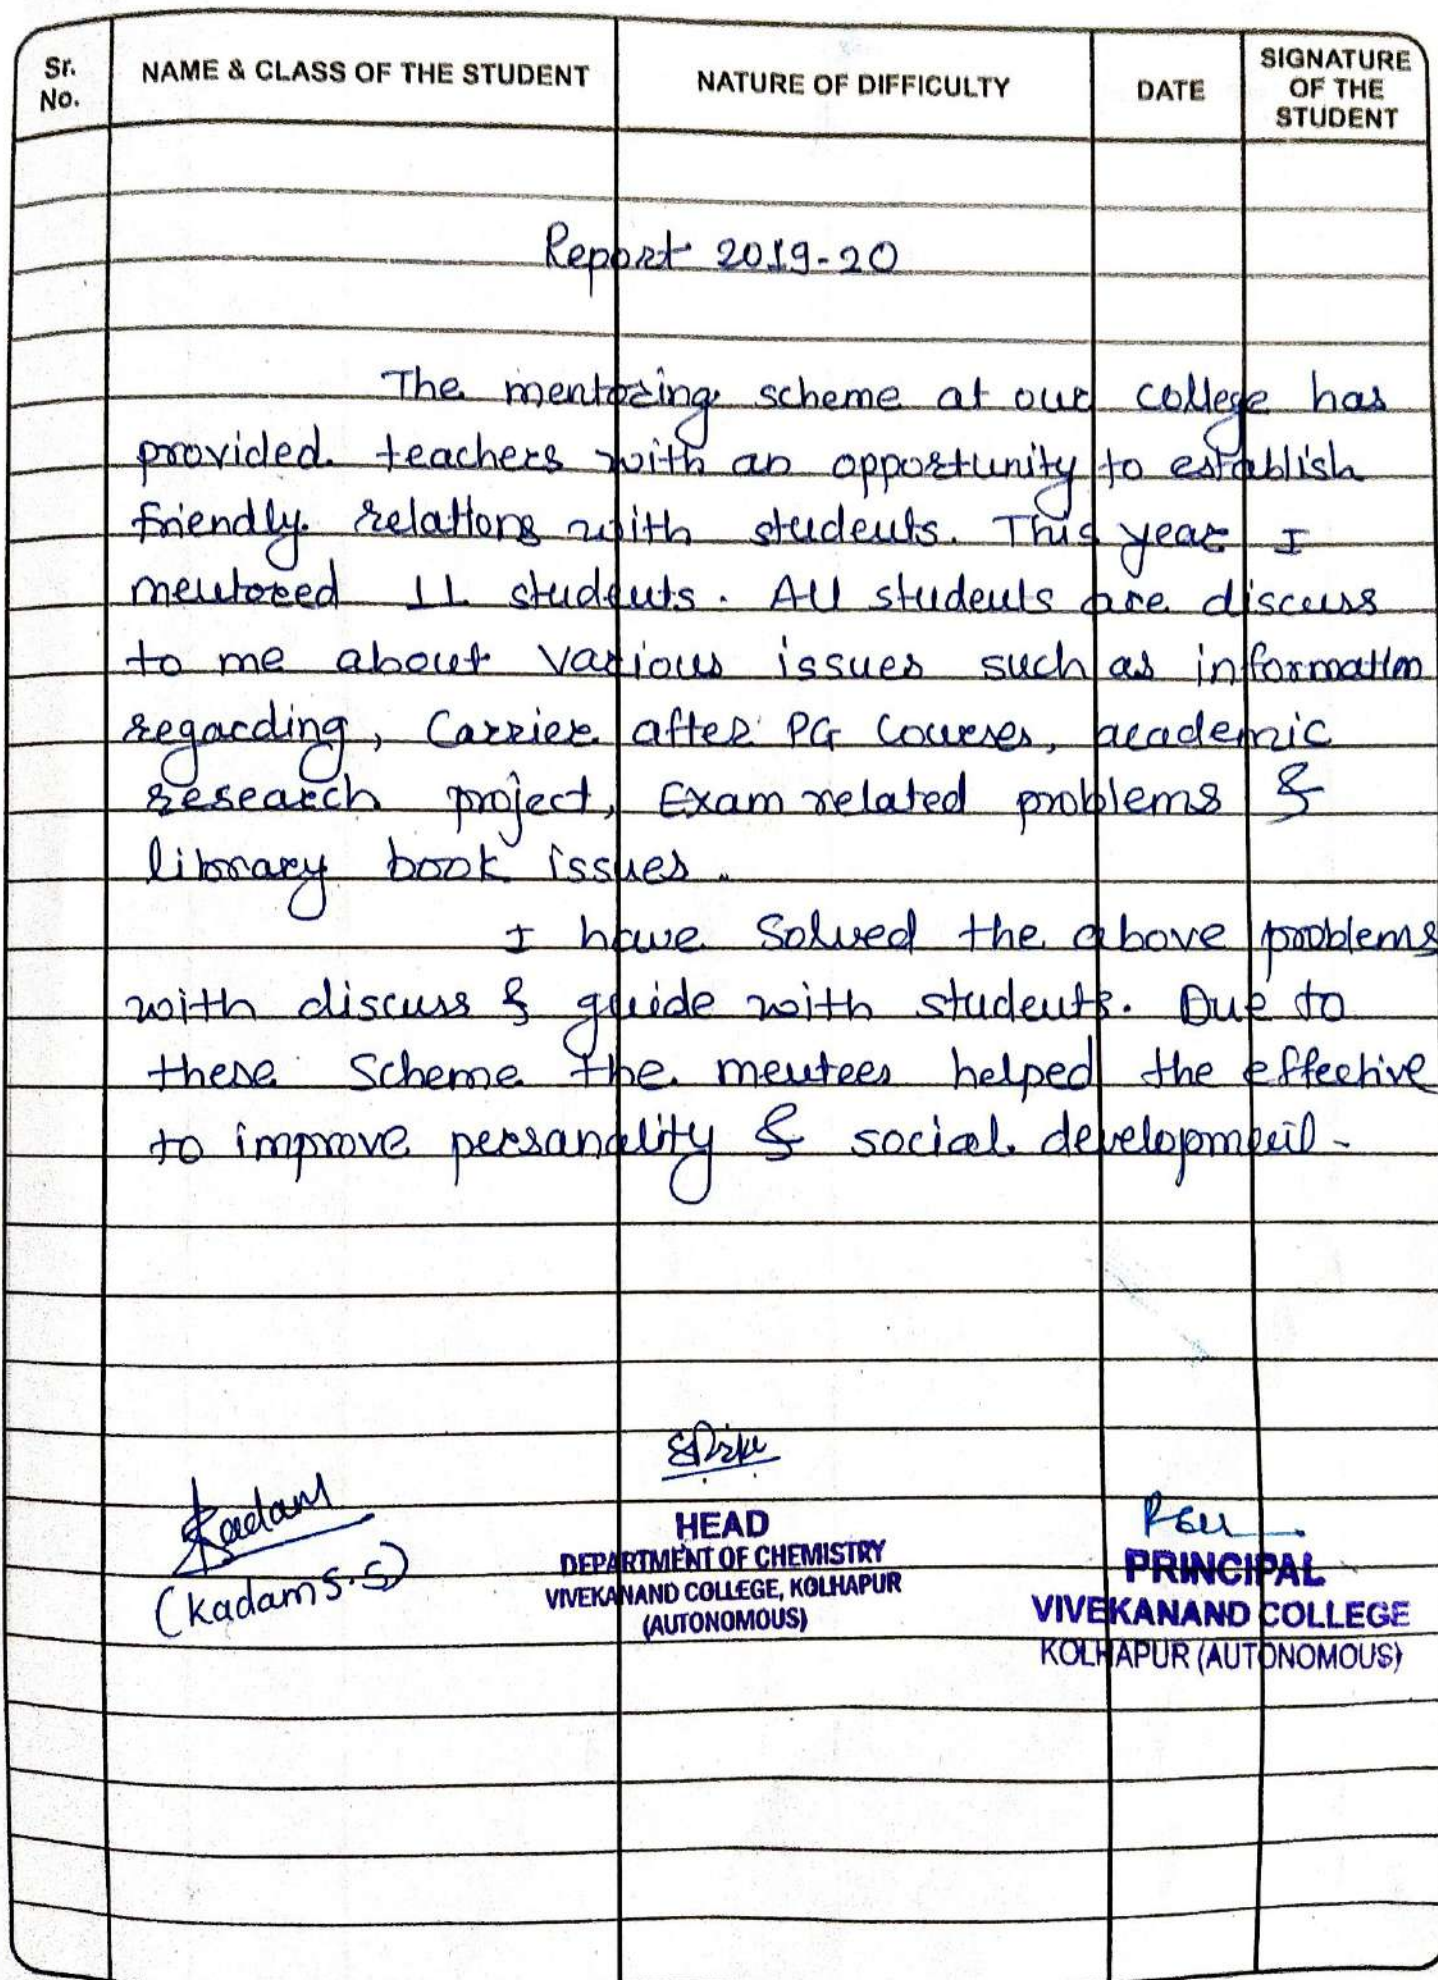 Sr. No.
NAME & CLASS OF THE STUDENT
NATURE OF DIFFICULTY
DATE
SIGNATURE OF THE STUDENT
Report 2019-20
The mentoring scheme at our college has
provided teachers with an opportunity to establish
friendly relations with students. This year I
mentored 11 students. All students are discuss
to me about various issues such as information
regarding, Carrier after PG Courses, academic
research project, Exam related problems &
library book issues.
I have solved the above problems
with discuss & guide with students. Due to
these Scheme the mentees helped the effective
to improve persanality & social development.
Kadam
(Kadam S.S)
HEAD
DEPARTMENT OF CHEMISTRY
VIVEKANAND COLLEGE, KOLHAPUR
(AUTONOMOUS)
PRINCIPAL
VIVEKANAND COLLEGE
KOLHAPUR (AUTONOMOUS)